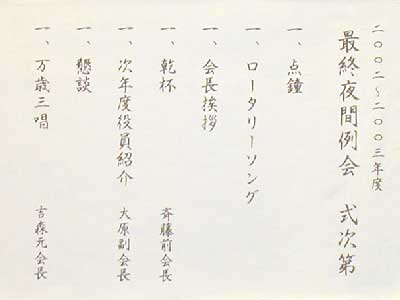 二〇〇二~二〇〇三年度
最終夜間例会 式次第
一、点鐘
一、ロータリーソング
一、会長挨拶
一、乾杯 斉藤前会長
一、次年度役員紹介 大原副会長
一、懇談
一、万歳三唱 吉森元会長